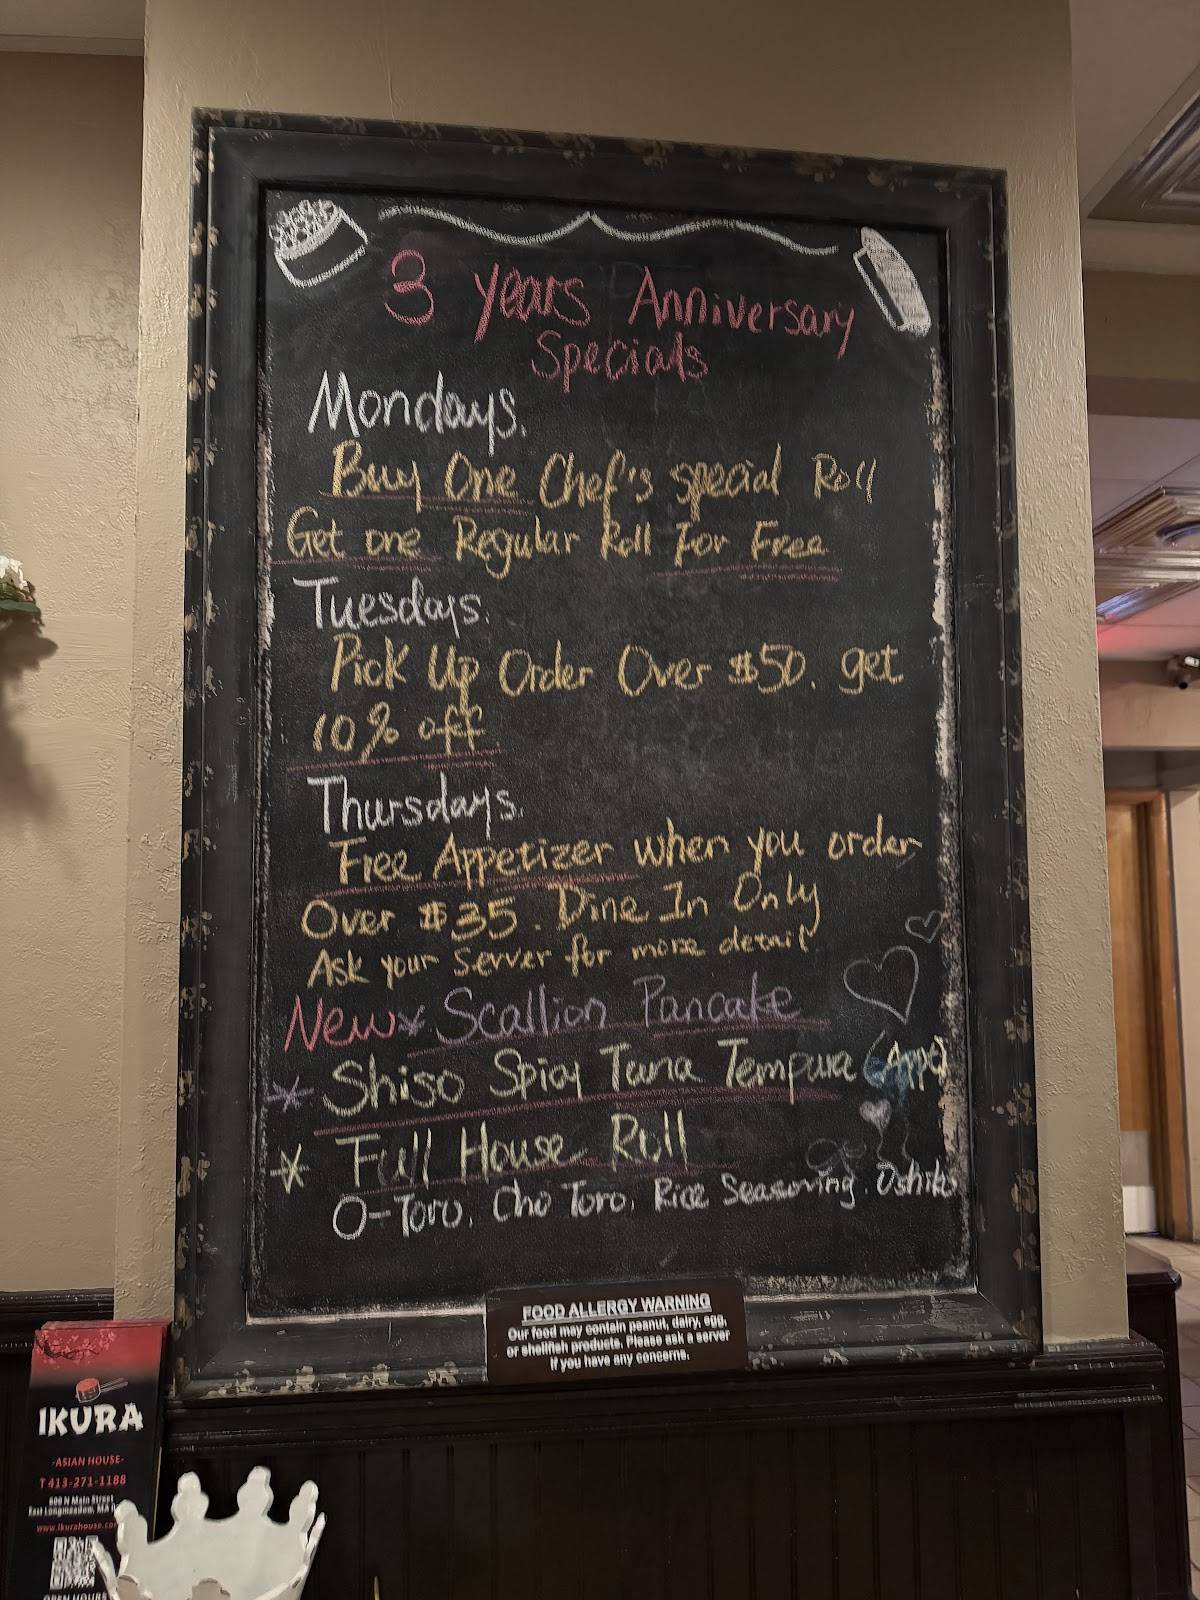 3 Years Anniversary
Specials
Mondays.
Buy One Chef's special Roll
Get one Regular Roll For Free
Tuesdays.
Pick Up Order Over $50. get
10% off
Thursdays.
Free Appetizer when you order
Over $35. Dine In Only
Ask your server for more detail
New * Scallion Pancake
* Shiso Spicy Tuna Tempura (App)
* Full House Roll
O-Toro. Cho Toro. Rice Seasoning. Oshiko
FOOD ALLERGY WARNING
Our food may contain peanut, dairy, egg,
or shellfish products. Please ask a server
if you have any concerns.
IKURA
·ASIAN HOUSE·
T 413-271-1188
608 N Main Street
East Longmeadow, MA
www.ikurahouse.co
OPEN HOURS